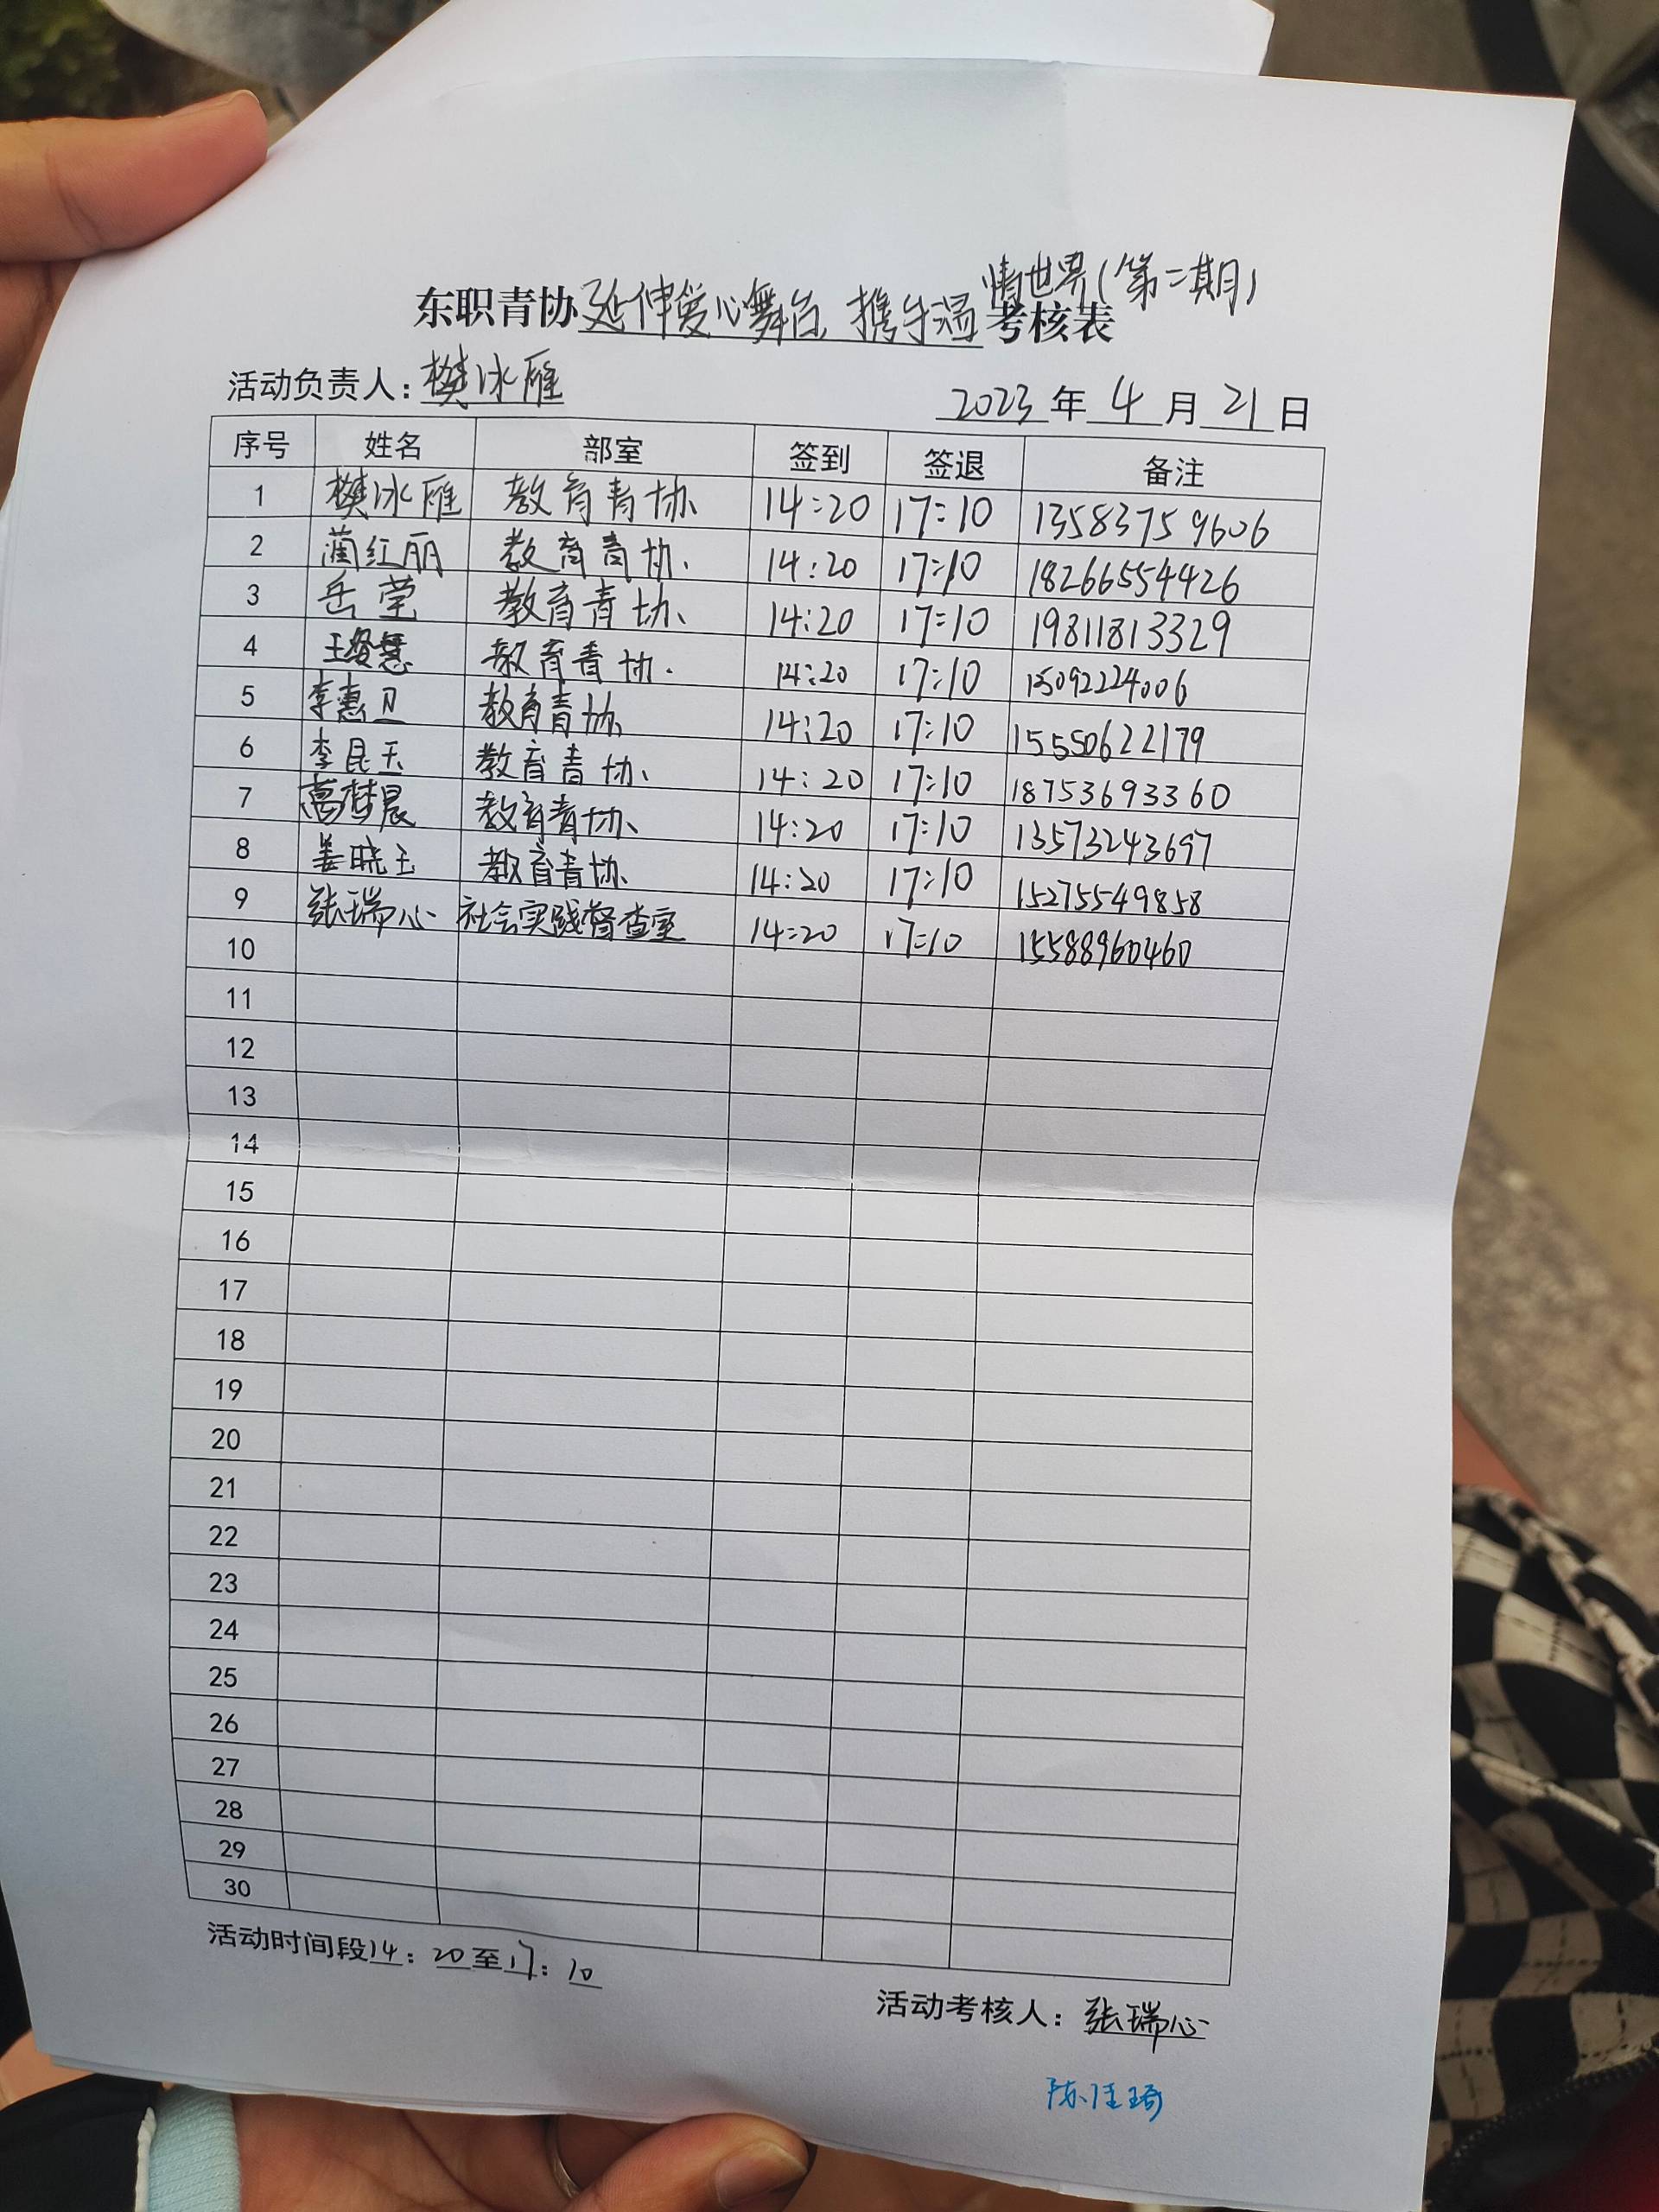 情世界(第二期)
东职青协延伸爱心舞台 携手温考核表
活动负责人：樊冰雁
2023年4月21日
序号 姓名 部室 签到 签退 备注
1 樊冰雁 教育青协 14:20 17:10 13583759606
2 蔺红丽 教育青协 14:20 17:10 18266554426
3 岳莹 教育青协 14:20 17:10 19811813329
4 教育青协 14:20 17:10 15092224006
5 教育青协 14:20 17:10 15550622179
6 李昆玉 教育青协 14:20 17:10 18753693360
7 教育青协 14:20 17:10 13573243697
8 姜晓玉 教育青协 14:20 17:10 15275549858
9 张瑞心 社会实践督查室 14:20 17:10 15588960460
10
11
12
13
14
15
16
17
18
19
20
21
22
23
24
25
26
27
28
29
30
活动时间段14：20至17：10
活动考核人：张瑞心
陈佳琦